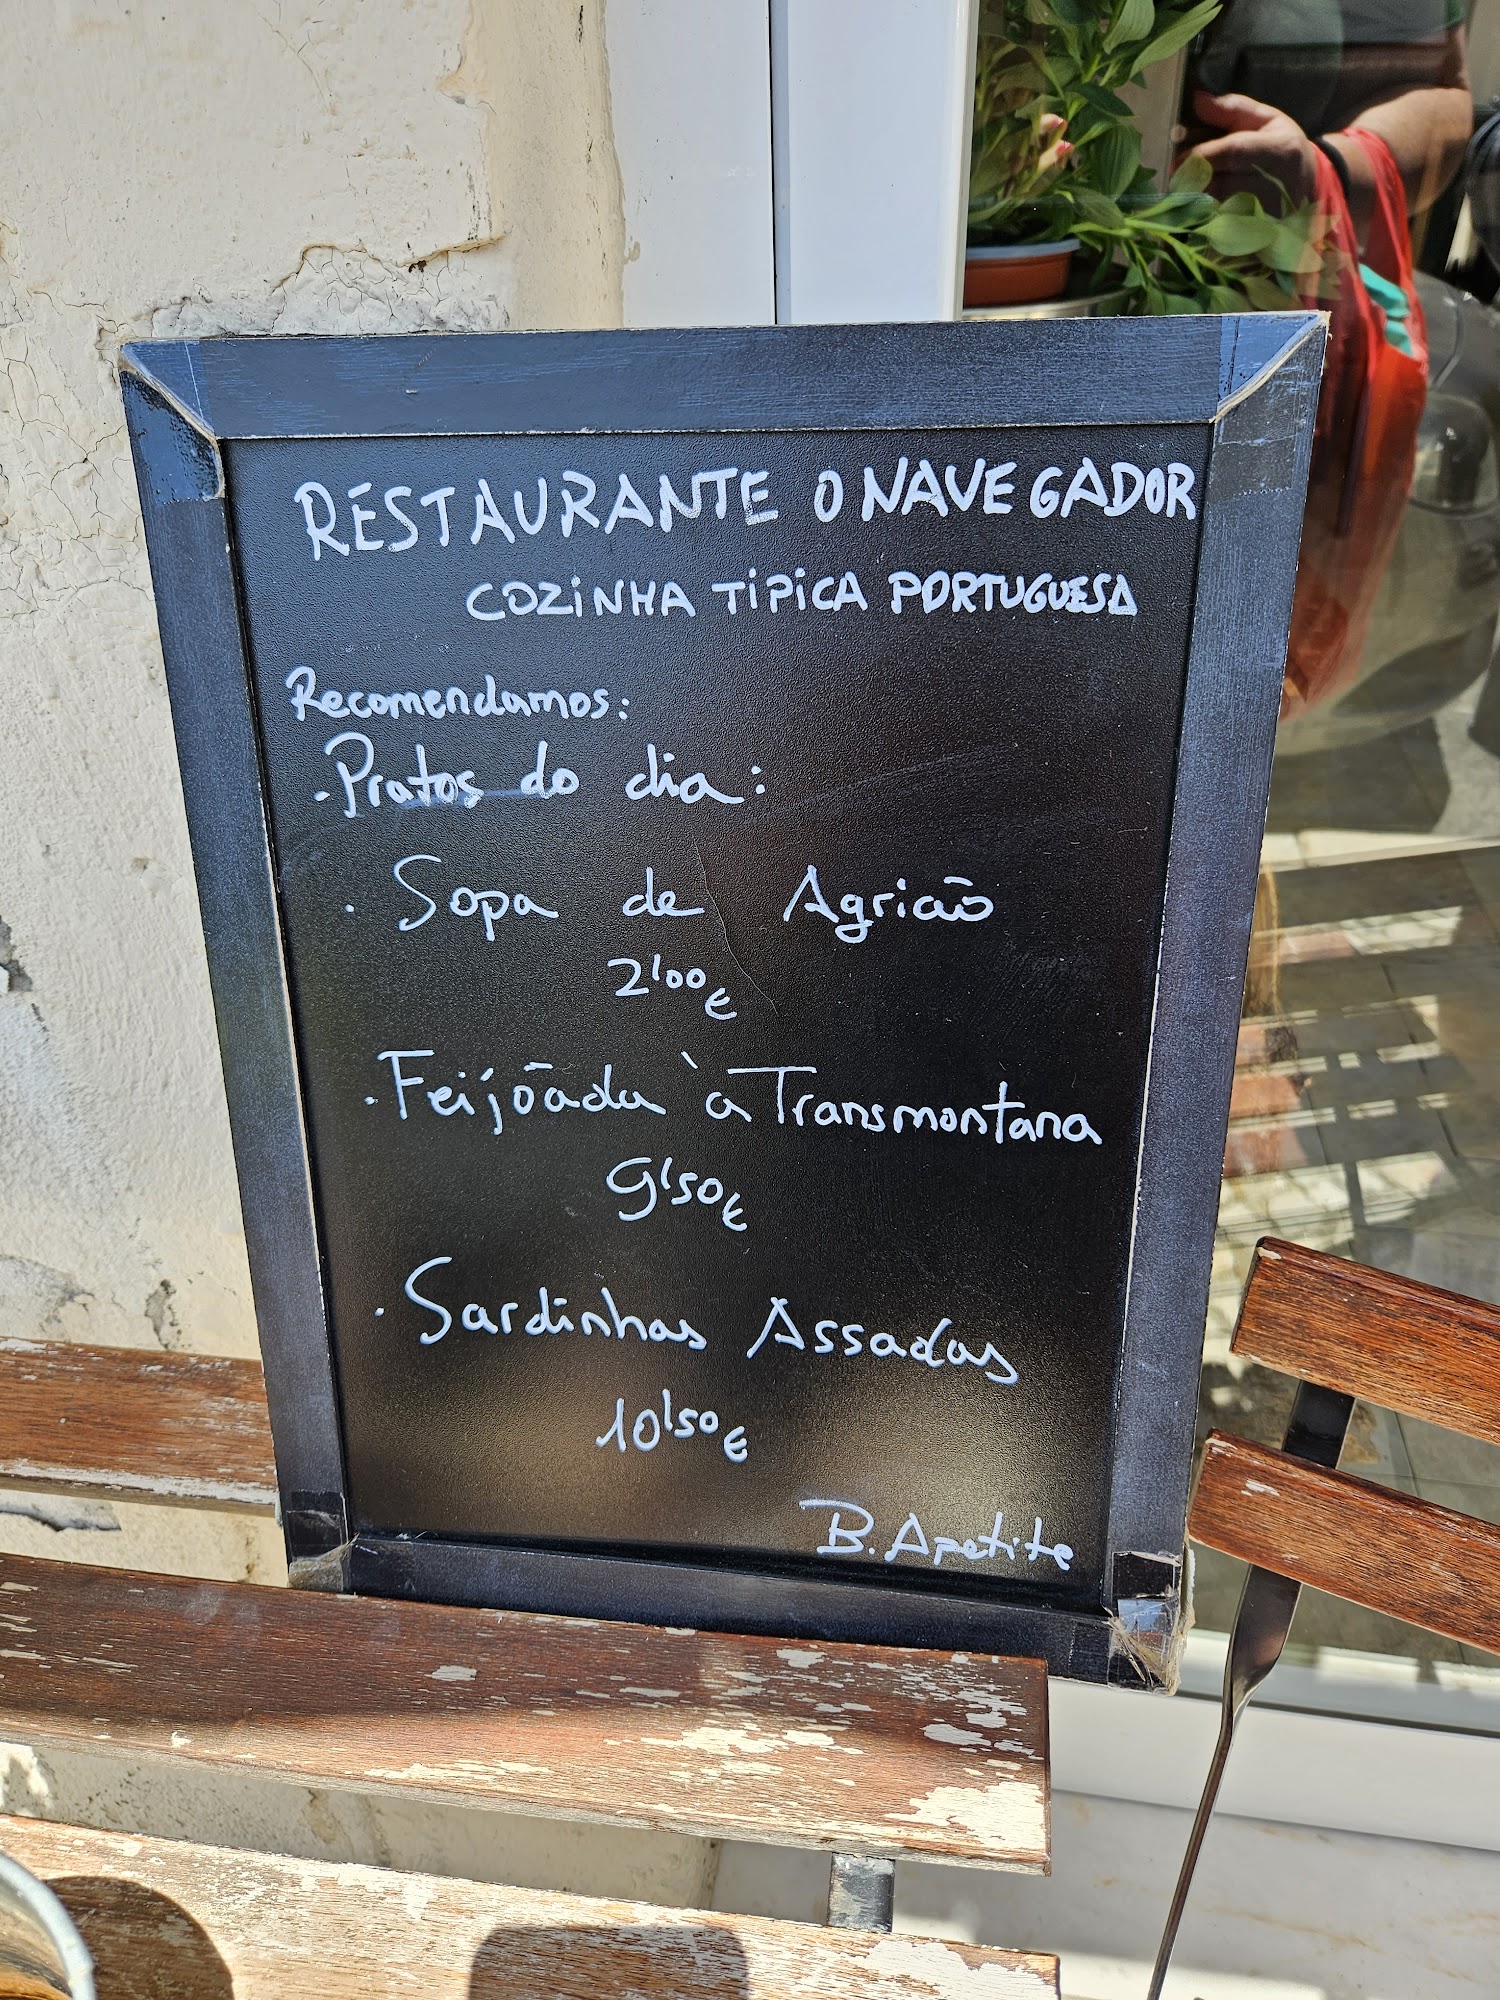 RESTAURANTE O NAVEGADOR
COZINHA TIPICA PORTUGUESA
Recomendamos:
- Pratos do dia:
· Sopa de Agrião
2'00€
· Feijõada à Transmontana
9'50€
· Sardinhas Assadas
10'50€
B. Apetite